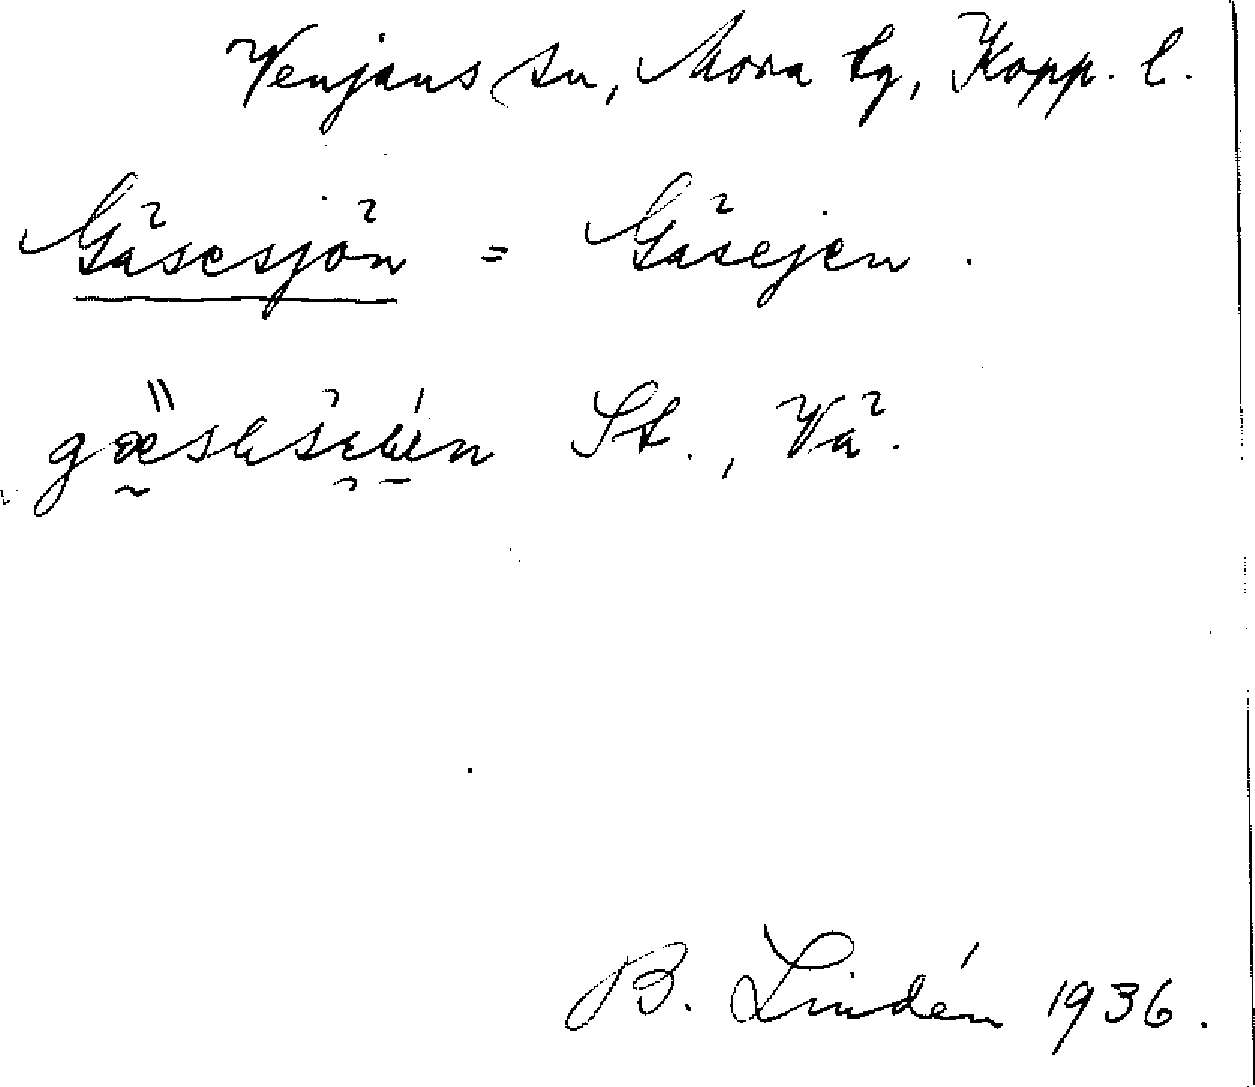 Venjans sn, Mora tg, Kopp. l.
Gåsesjön = Gåsejen.
St., Vå.
B. Lindén 1936.